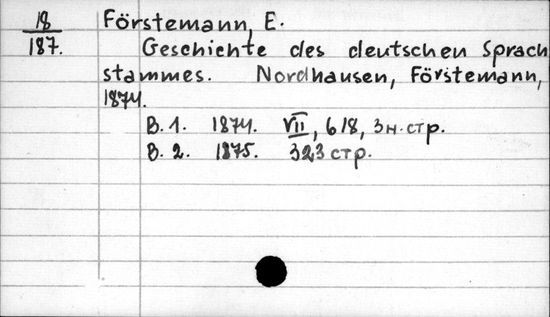 18 Förstemann, E.
187. Geschichte des deutschen Sprach
stammes. Nordhausen, Förstemann,
1874.
B. 1. 1874. VII, 618, 3н.стр.
B. 2. 1875. 323 стр.